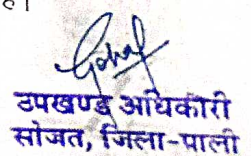 है।
उपखण्ड अधिकारी
सोजत, जिला-पाली